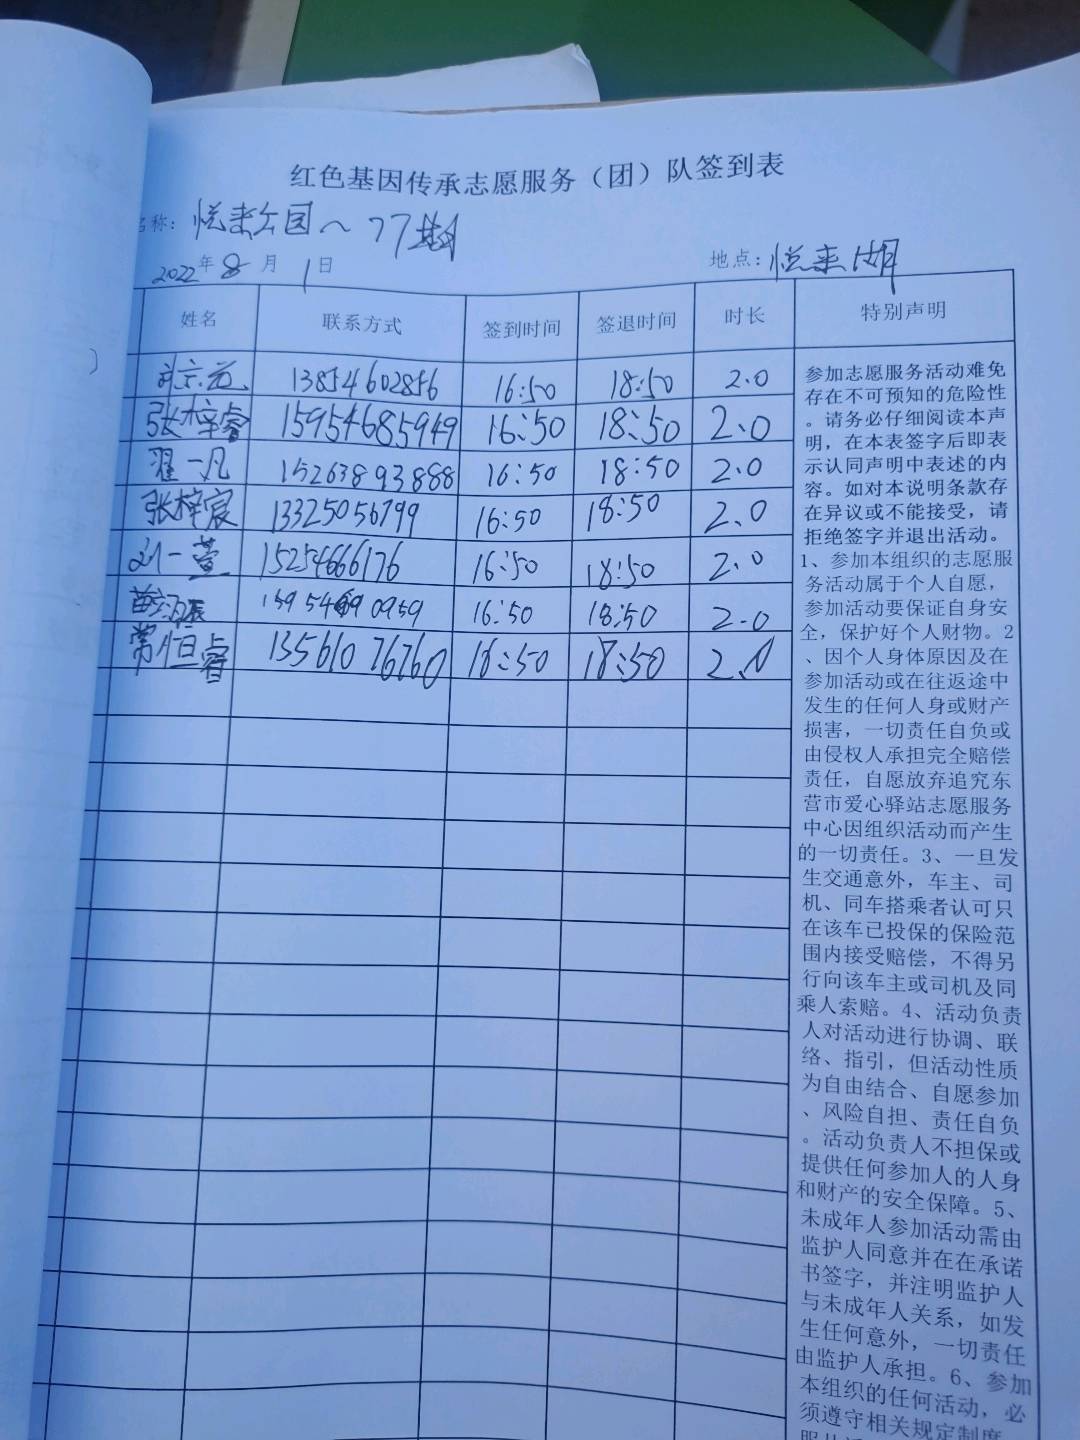 红色基因传承志愿服务（团）队签到表
名称：悦来公园～77期
2022年8月1日
地点：悦来湖
姓名 联系方式 签到时间 签退时间 时长 特别声明
13854602856 16:50 18:50 2.0
张梓睿 15954685949 16:50 18:50 2.0
翟一凡 15263893888 16:50 18:50 2.0
张梓宸 13325056799 16:50 18:50 2.0
刘一萱 15254666176 16:50 18:50 2.0
16:50 18:50 2.0
常恒睿 13561076760 16:50 18:50 2.0
参加志愿服务活动难免
存在不可预知的危险性
。请务必仔细阅读本声
明，在本表签字后即表
示认同声明中表述的内
容。如对本说明条款存
在异议或不能接受，请
拒绝签字并退出活动。
1、参加本组织的志愿服
务活动属于个人自愿，
参加活动要保证自身安
全，保护好个人财物。2
、因个人身体原因及在
参加活动或在往返途中
发生的任何人身或财产
损害，一切责任自负或
由侵权人承担完全赔偿
责任，自愿放弃追究东
营市爱心驿站志愿服务
中心因组织活动而产生
的一切责任。3、一旦发
生交通意外，车主、司
机、同车搭乘者认可只
在该车已投保的保险范
围内接受赔偿，不得另
行向该车主或司机及同
乘人索赔。4、活动负责
人对活动进行协调、联
络、指引，但活动性质
为自由结合、自愿参加
、风险自担、责任自负
。活动负责人不担保或
提供任何参加人的人身
和财产的安全保障。5、
未成年人参加活动需由
监护人同意并在在承诺
书签字，并注明监护人
与未成年人关系，如发
生任何意外，一切责任
由监护人承担。6、参加
本组织的任何活动，必
须遵守相关规定制度